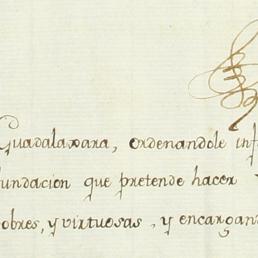 Guadalaxara, ordenandole inf
fundacion que pretende hacer
obres, y virtuosas, y encargan